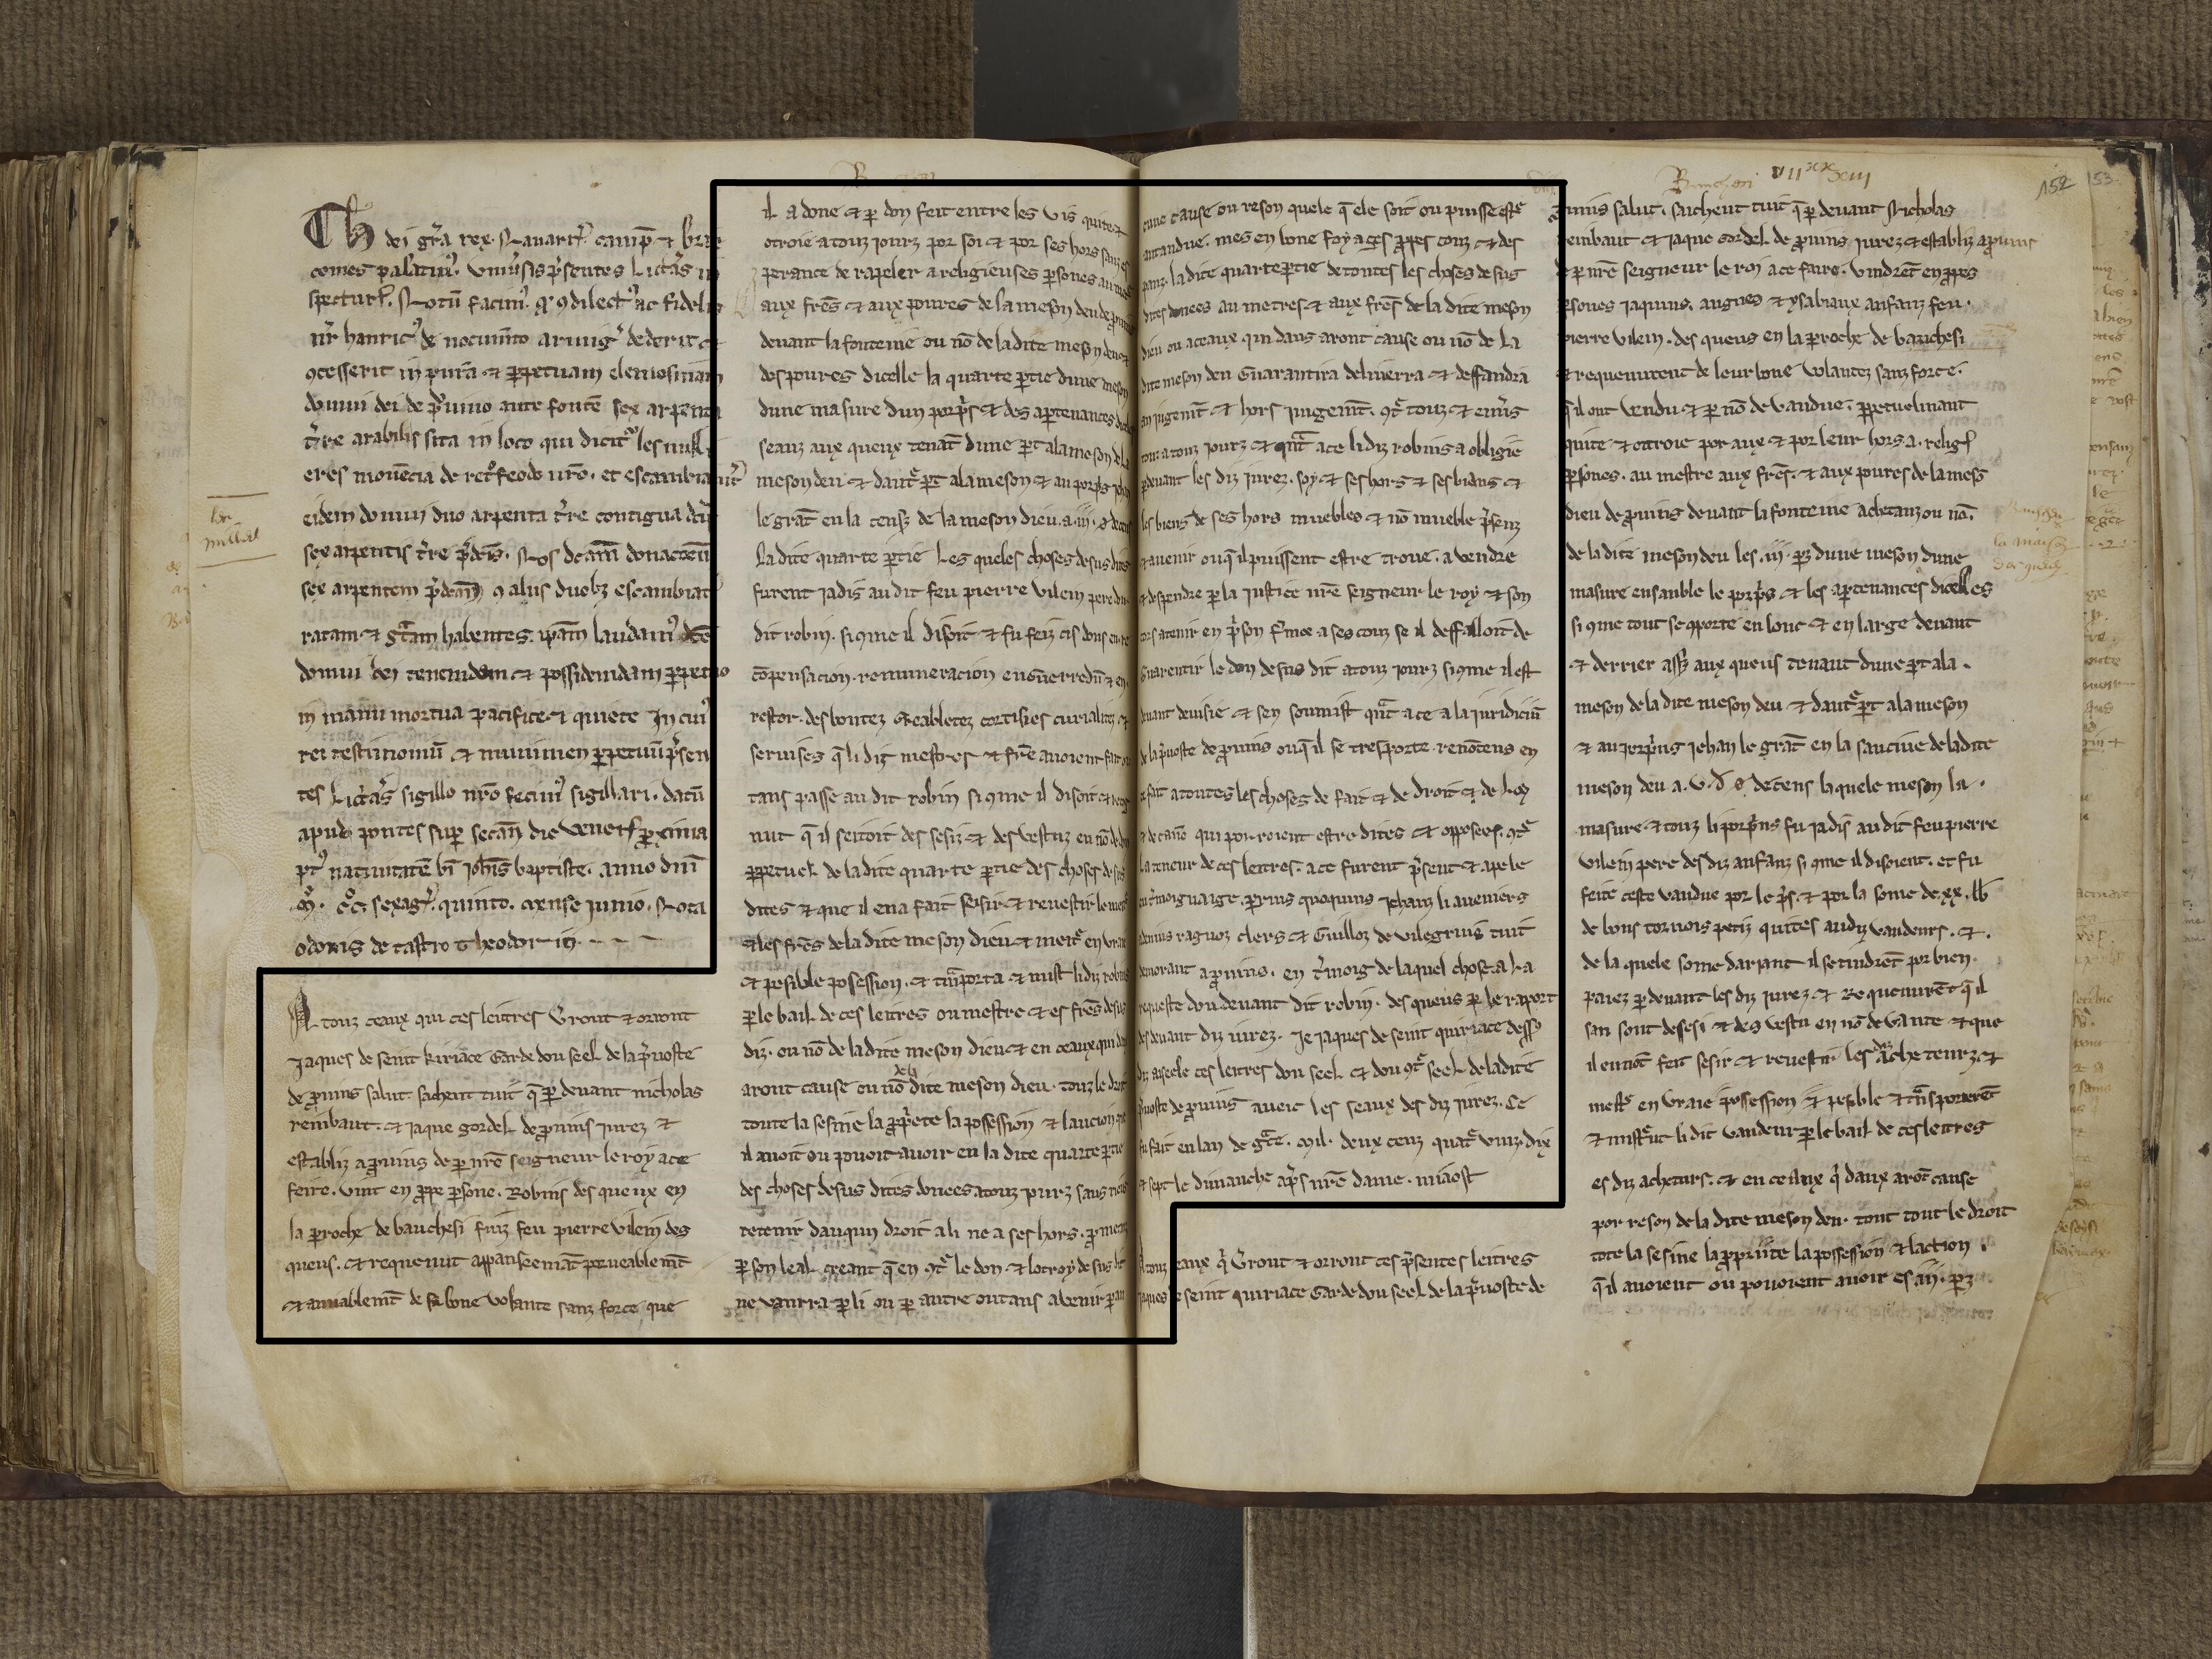 Th dei gr̃a rex. Nauarr̃. camp̃ & bri
comes palatinꝰ. vniũsis p̃sentes litt̃as in
specturis. Notũ facimꝰ. qͥ dilectꝰ ac fidelis
nr̃ hanricꝰ de nocumẽto armig̃ dederit &
ꝯcesserit in purã & ꝑpetuam elemosinam
domui dei de p̃uino ante fontẽ sex arpenta
t̃re arabilis sita in loco qui dicitᷣ les mill
eres mouẽcia de feodo nr̃o. et escambiauit
eidem domui duo arpenta t̃re contigua dc̃is
sex arpentis t̃re p̃dc̃is. Nos dc̃am donacõem
sex arpentem p̃dc̃am ꝯ aliis duobꝫ escambiat
ratam & gr̃tam habentes. ip̃am laudamꝰ dc̃e
domui dei tenendam & possidendam ꝑpetuo
in manu mortua pacifice & quiete In cuiꝰ
rei testimoniũ & munimen ꝑpetuũ p̃sen
tes litt̃as sigillo nr̃o fecimꝰ sigillari. datũ
apud pontes super secanã die vener̃ ꝓxima
pꝰ natiuitatẽ bĩ Joh̃is baptiste. anno dñi
mͦ. ccͦ. sexagͦ. quinto. mense Junio. Nota
odonis de castro theodorici.
A touz ceaux qui ces lettres verront & orront
Jaques de seint kiriace Garde dou seel de la p̃uoste
de ꝓuins salut. sachent tuit q̃ ꝑ deuant nicholas
reinbaut. & Jaque gordel de ꝓuins Jurez &
establiz a ꝓuins de ꝑ nr̃e seigneur le roy a ce
feire. vint en ꝓpe ꝑsone. Robins des queux en
la ꝑroche de bauchesi fuiz feu pierre vilein des
queus. & requenut appanseemãt porueablemẽt
& amiablemẽt de sa bone volante sanz force que
il a done & ꝑ don feit entre les vis quite &
otroie a touz Jourz por soi & por ses hors sanz es
perance de rapeler a religieuses ꝑsones au mes
aux fr̃es & aux poures de la meson deu de ꝓuins
deuant la fonteine ou nõ de la dite meson deu &
des poures dicelle la quarte ꝑtie dune meson
dune masure dun porpris & des apertenances dicels
seanz aux queux tenãt dune ꝑt a la meson de la
meson deu & dautr̃ ꝑt a la meson & au porpris Jehan
le grãt en la cens̃ de la meson dieu. a .iii. d̃ de cens
La dite quarte ꝑtie Les queles choses desus dites
furent Jadis au dit feu pierre vilein pere du
dit robin. si ꝯme il disoit & fu feiz cis dons en re
cõpensacion. remuneracion en guerredũ & en
restor. des bontez & eabletez cortisies curialitez &
seruises q̃ li diz mestres & fr̃e auoient fait ou
tans passe au dit robin si ꝯme il disoit & requ
nut q̃ il seitoit des sesiz & des vestuz en nõ de don
ꝑpetuel de la dite quarte ꝑtie des choses desus
dites & que il en a fait sesir & reuestir le mestre
& les fr̃es de la dite meson dieu & metr̃ en vraie
& pesible possession. & trãsporta & mist li diz robins
ꝑ le bail de ces lettres ou mestre & es fr̃es desus
diz. ou nõ de la dite meson dieu & en ceaux qui dou
aront cause ou nõ de la dite meson dieu. touz le droit
toute la sesine la ꝓpriete la possession & laucion que
il auoit ou pouoit auoir en la dite quarte ꝑtie
des choses desus dites donees a touz Jourz sans rien
retenir dauqun droit a li ne a ses hors. ꝓmetanz
ꝑ son leal creant q̃ en ꝯtr̃ le don & lotroy desus dit
ne vanrra ꝑ li ou ꝑ autre ou tans a venir ꝑ au
cune cause ou reson quele q̃ ele soit ou puisse estr̃
antandue. mes en bone foy a ses ꝓpes couz & des
panz. la dite quarte ꝑtie de toutes les choses desus
dites donees au metres & aux fr̃es de la dite meson
dieu ou a ceaux qui dans aront cause ou nõ de la
dite meson deu Guarantira deliuerra & deffandra
en iugemẽt & hors iugemẽt. ꝯtr̃ touz & enũs
touz a touz Jourz & quãt a ce li diz robins a obligie
ꝑ deuant les diz Jurez. soy & ses hors & ses biens &
les biens de ses hors muebles & nõ mueble p̃senz
& auenir ou q̃ il puissent estre troue. a vendre
& despendre ꝑ la Justice nr̃e seigneur le roy & son
cors a tenir en p̃son f̃mee a ses couz se il deffalloit de
Guarentir le don desus dit a touz Jourz si ꝯme il est
deuant deuisie & sen soumist quãt a ce a la iuridiciũ
de la p̃uoste de ꝓuins ou q̃ il se tresporte. renõcens en
ce fait a toutes les choses de fait & de droit & de loy
& de canõ qui porroient estre dites & opposees. ꝯtr̃
la teneur de ces lettres. a ce furent p̃sent & apele
en t̃moignaige. ꝑrins quoquins Jehanz li aueniers
denins raguoz clers & Guilloz de vilegruis tuit
demorant a ꝓuins. en t̃moig de laquel chose. a la
requeste dou deuant dit robin. des queus ꝑ le raport
des deuant diz Jurez. Je Jaques de seint quiriace dess̃
diz ai seele ces lettres dou seel & dou ꝯtr̃ seel de la dite
p̃uoste de ꝓuins auec les seaux des diz Jurez. Ce
fu fait en lan de gr̃ce. mil. deux cenz quatr̃ vinz. dix
& sept le dimanche ap̃s nr̃e dame. miaost
A touz ceaux q̃ verront & orront ces p̃sentes lettres
Jaques de seint quiriace Garde dou seel de la p̃uoste de
ꝓuins salut. sachent tuit q̃ ꝑ deuant Nicholas
reinbaut & Jaque Gordel de ꝓuins Jurez & establiz a ꝓuins
de ꝑ nr̃e seigneur le roi a ce faire. vindrẽt en ꝓpes
ꝑsones Jaquins. angnes & ysabiaux anfanz feu.
pierre vilein. des queus en la ꝑroche de bauchesi
& requenurent de leur bone volantez sanz force.
q̃ il ont vendu & ꝑ nõ de vandue. ꝑpetuelmant
quite & otroie por aux & por leur hors. a. religꝰ
ꝑsones. au mestre aux fr̃es. & aux poures de la mesõ
dieu de ꝓuins deuant la fonteine achetanz ou nõ.
de la dite meson deu les .iii. ꝑz dune meson dune
masure ensanble le porpris & les apertenances dicelles
si ꝯme tout se ꝯporte en lonc & en large deuant
& derrier assis aux queus tenant dune ꝑt a la.
meson de la dite meson deu & dautr̃ ꝑt a la meson
& au porpris Jehan le grãt en la sancive de la dite
meson deu a .v. d̃ de cens laquele meson la.
masure & touz li porpris fu Jadis au dit feu pierre
vilein pere des diz anfanz si ꝯme il disoient. et fu
feite ceste vandue por le pris. & por la some de .xx. lb̃
de bons tornois petiz quites audiz vandeurs. &.
de la quele some darjant il se tindrẽt por bien.
paiez ꝑ deuant les diz Jurez & Requenurẽt q̃ il
san sont desesi & des vestu en nõ de vante & que
il en ont feit sesir & reuestir les diz acheteurz &
mestr̃ en vraie possession & pesible & trãsporterẽt
& mistr̃ut li dit vandeur ꝑ le bail de ces lettres
es diz acheturs. & en ceaux q̃ daux arõt cause
por reson de la dite meson deu. tout tout le droit
tote la sesine la ꝓpriite la possession & laction.
q̃ il auoient ou pouoient auoir es .iii. ꝑz
152
153